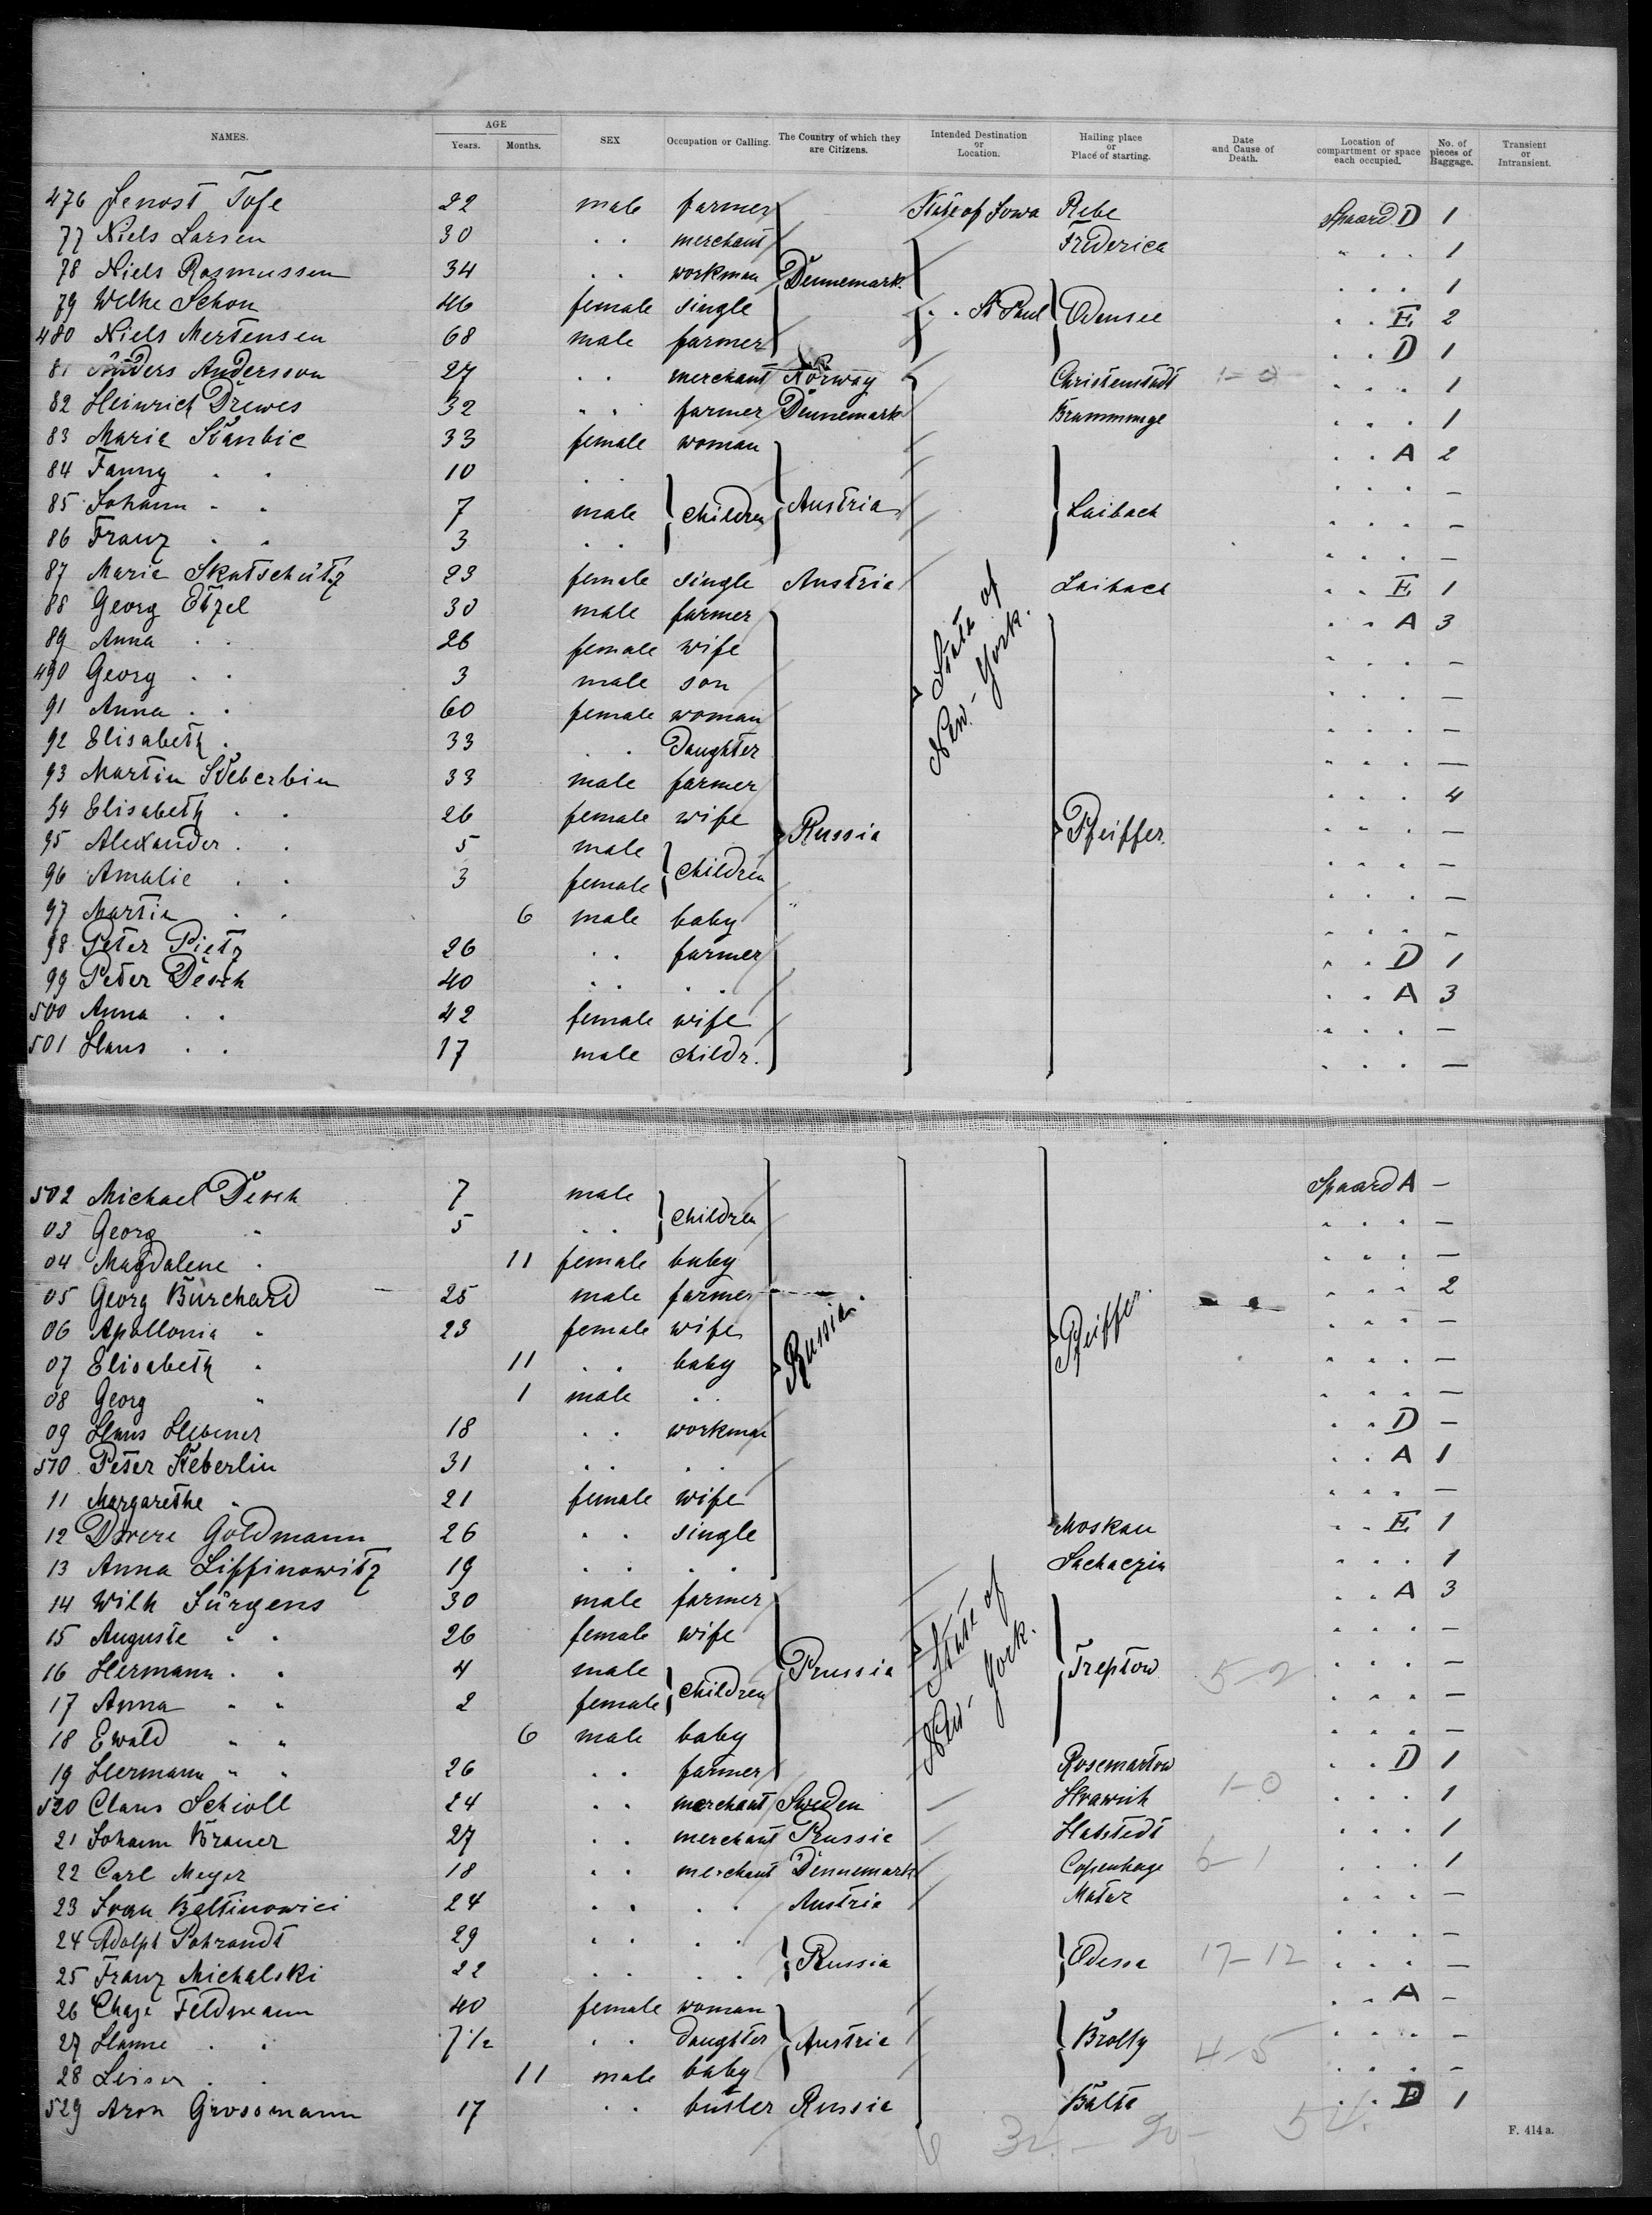 NAMES. AGE Years. Months. SEX Occupation or Calling. The Country of which they are Citizens. Intended Destination or Location. Hailing place or Place of starting. Date and Cause of Death. Location of compartment or space each occupied. No. of pieces of Baggage. Transient or Intransient.
476 Jenost Tofe 22 male farmer State of Iowa Ribe D 1
77 Niels Larsen 30 . . merchant Friderica . . . 1
78 Niels Rasmussen 34 . . workman Dennemark . . . 1
79 Schon 46 female single . . St Paul Odensee . . E 2
480 Niels Mertensen 68 male farmer . . D 1
81 Anders Andersson 27 . . merchant Norway Christenstadt 1-0 . . . 1
82 Heinrich Drewes 32 . . farmer Dennemark . . . 1
83 Maria Stanbic 33 female woman . . A 2
84 Fanny . . 10 . . . . . —
85 Johann . . 7 male children Austria Laibach . . . —
86 Franz . . 3 . . . . . —
87 Maria Skatschütz 23 female single Austria State of New-York. Laibach . . E 1
88 Georg Etzel 30 male farmer . . A 3
89 Anna . . 26 female wife . . . —
490 Georg . . 3 male son . . . —
91 Anna . . 60 female woman . . . —
92 Elisabeth . 33 . . Daughter . . . —
93 Martin Steberbin 33 male farmer . . . 4
94 Elisabeth . . 26 female wife Russia Pfeiffer. . . . —
95 Alexander . . 5 male children . . . —
96 Amalie . . 3 female . . . —
97 Martin . . 6 male baby . . . —
98 Peter Pietz 26 . . farmer . . D 1
99 Peter Desch 40 . . . . . . A 3
500 Anna . . 42 female wife . . . —
501 Hans . . 17 male childr. . . . —
502 Michael Desch 7 male children A —
03 Georg " 5 . . . . . —
04 Magdalene . 11 female baby . . . —
05 Georg Burchard 25 male farmer . . . 2
06 Apollonia " 23 female wife Russia. Pfeiffer. . . . —
07 Elisabeth . 11 . . baby . . . —
08 Georg " 1 male . . . . . —
09 Hans Hebener 18 . . workman . . D —
510 Peter Steberlin 31 . . . . . . A 1
11 Margarethe " 21 female wife . . . —
12 Goldmann 26 . . single Moskau . . E 1
13 Anna Lippinowitz 19 . . . . Sachaczin . . . 1
14 Wilh Jürgens 30 male farmer State of New-York. . . A 3
15 Auguste " " 26 female wife . . . —
16 Hermann . . 4 male children Prussia Treptow 5-2 . . . —
17 Anna " " 2 female . . . —
18 Ewald " " 6 male baby . . . —
19 Hermann " " 26 . . farmer Rosemartow . . D 1
520 Claus Schioll 24 . . merchant Sweden 1-0 . . . 1
21 Johann Brauer 27 . . merchant Prussia Hatstedt . . . 1
22 Carl Meyer 18 . . merchant Dennemark Copenhage 6-1 . . . 1
23 Ivan Baltinowici 24 . . . . Austria . . . —
24 Adolph Pohrandt 29 . . . . . . . —
25 Franz Michalski 22 . . . . Russia Odessa 17-12 . . . —
26 Chaje Feldmann 40 female woman . . A —
27 Hanne . . 7 1/2 . . daughter Austria Brolly 4-5 . . . —
28 Leiser . . 11 male baby . . . —
529 Aron Grossmann 17 . . butler Russia Balta . . 1
F. 414 a.